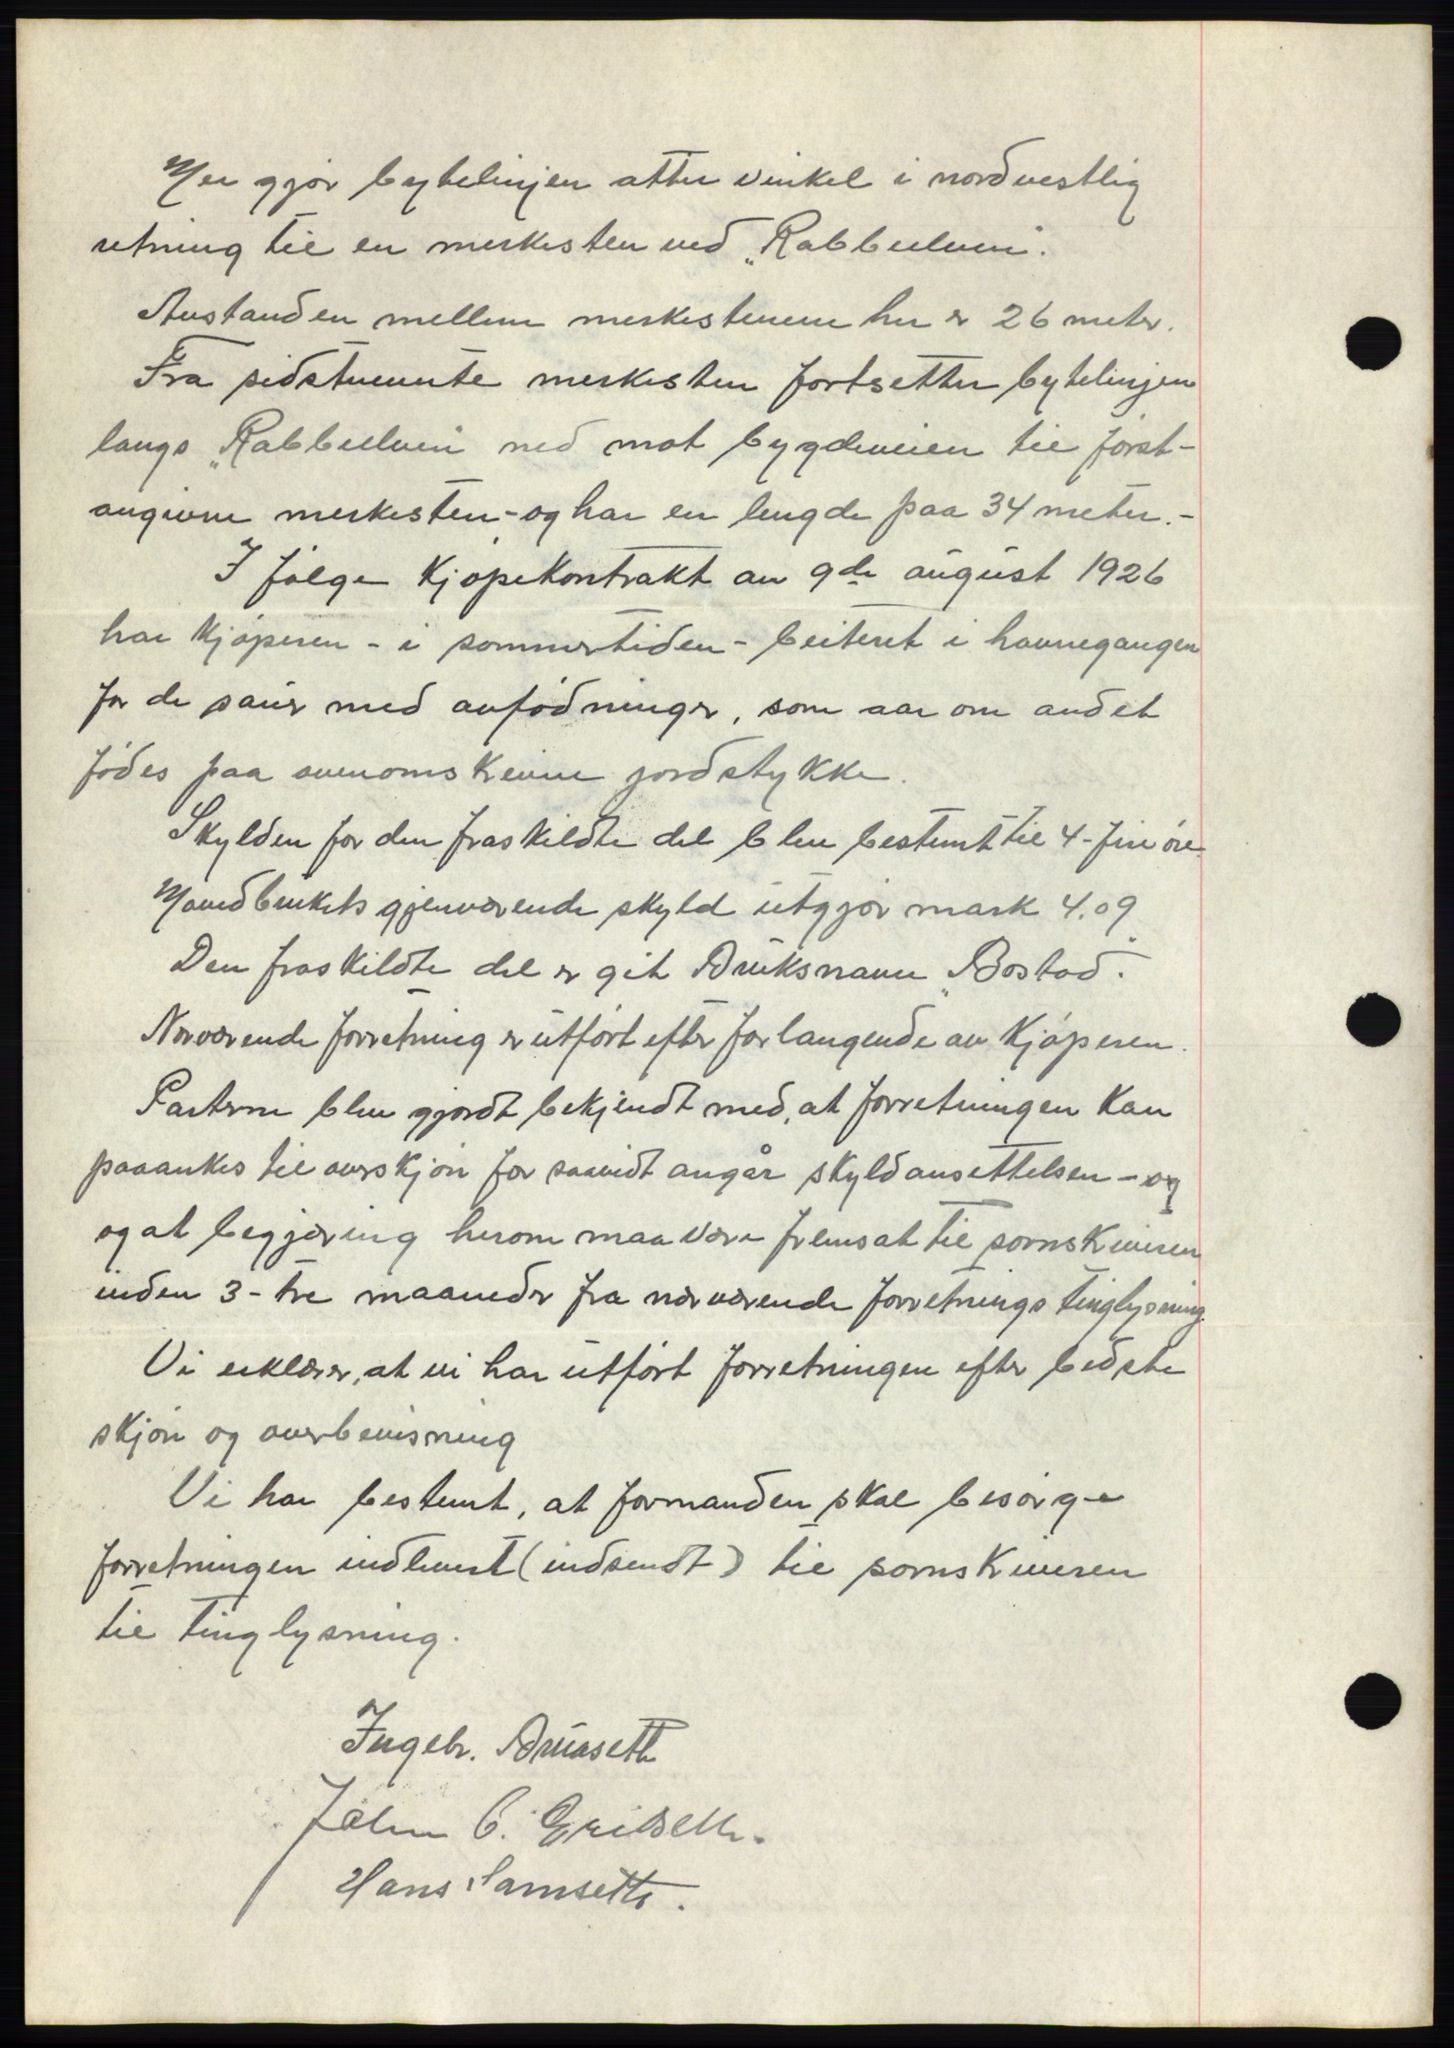 Her gjør bytelinjen atter vinkel i nordvestlig
retning til en merkesten ved „Rabbeelven".
Avstanden mellem merkestenene her er 26 meter.
Fra sidstnevnte merkesten fortsetter bytelinjen
langs „Rabbeelven" ned mot bygdeveien til først-
angivne merkesten, - og har en lengde paa 34 meter. -
I følge Kjøpekontrakt av 9de august 1926
har Kjøperen - i sommertiden - beiteret i havnegangen
for de sauer med avfødninger, som aar om andet
fødes paa ovenomskrevne jordstykke.
Skylden for den fraskildte del blev bestemt til 4 - fire øre
Hovedbrukets gjenværende skyld utgjør mark 4.09
Den fraskildte del er git Bruksnavn „Bostad".
Nærværende forretning er utført efter forlangende av Kjøperen.
Parterne blev gjordt bekjendt med, at forretningen kan
paaankes til overskjøn for saavidt angår skyldansettelsen - og
og at begjæring herom maa være fremsat til sorenskriveren
inden 3 - tre maaneder fra nærværende forretnings tinglysning.
Vi erklærer, at vi har utført forretningen efter bedste
skjøn og overbevisning
Vi har bestemt, at formanden skal besørge
forretningen indlevert (indsendt) til sorenskriveren
til tinglysning.
Ingebr. Bruaseth
John C. Eridseth.
Hans Samseth.